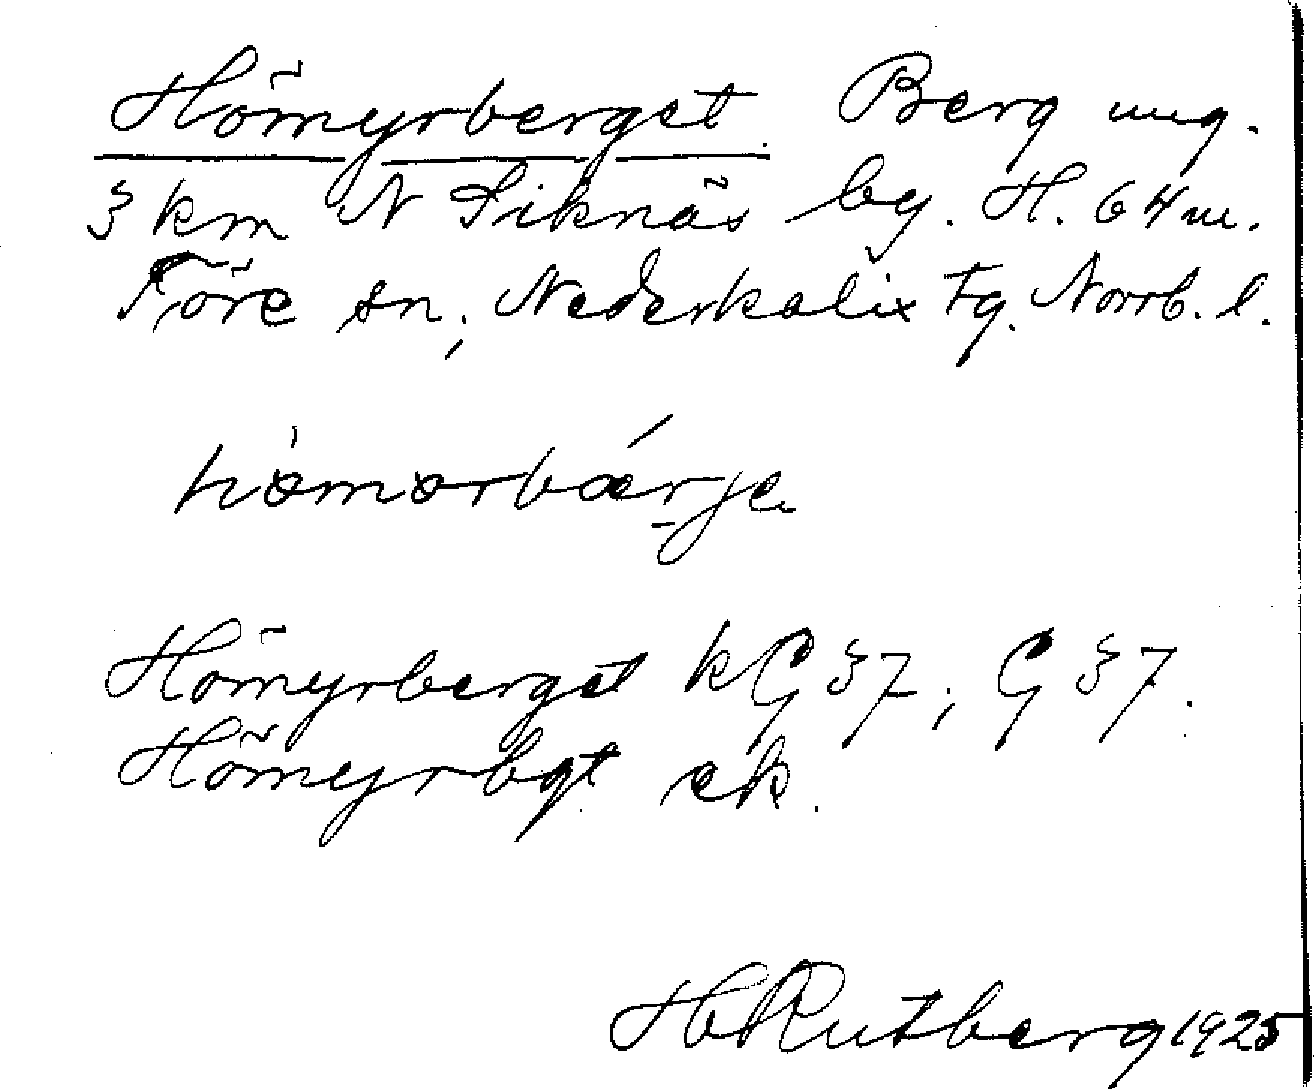 Hömyrberget Berg ung.
3 km N Siknäs by. H. 64 m.
Töre sn, Nederkalix tg. Norrb. l.
hömorbærje
Hömyrberget kG 37, G 37.
Hömyrbgt ek.
H Rutberg 1925